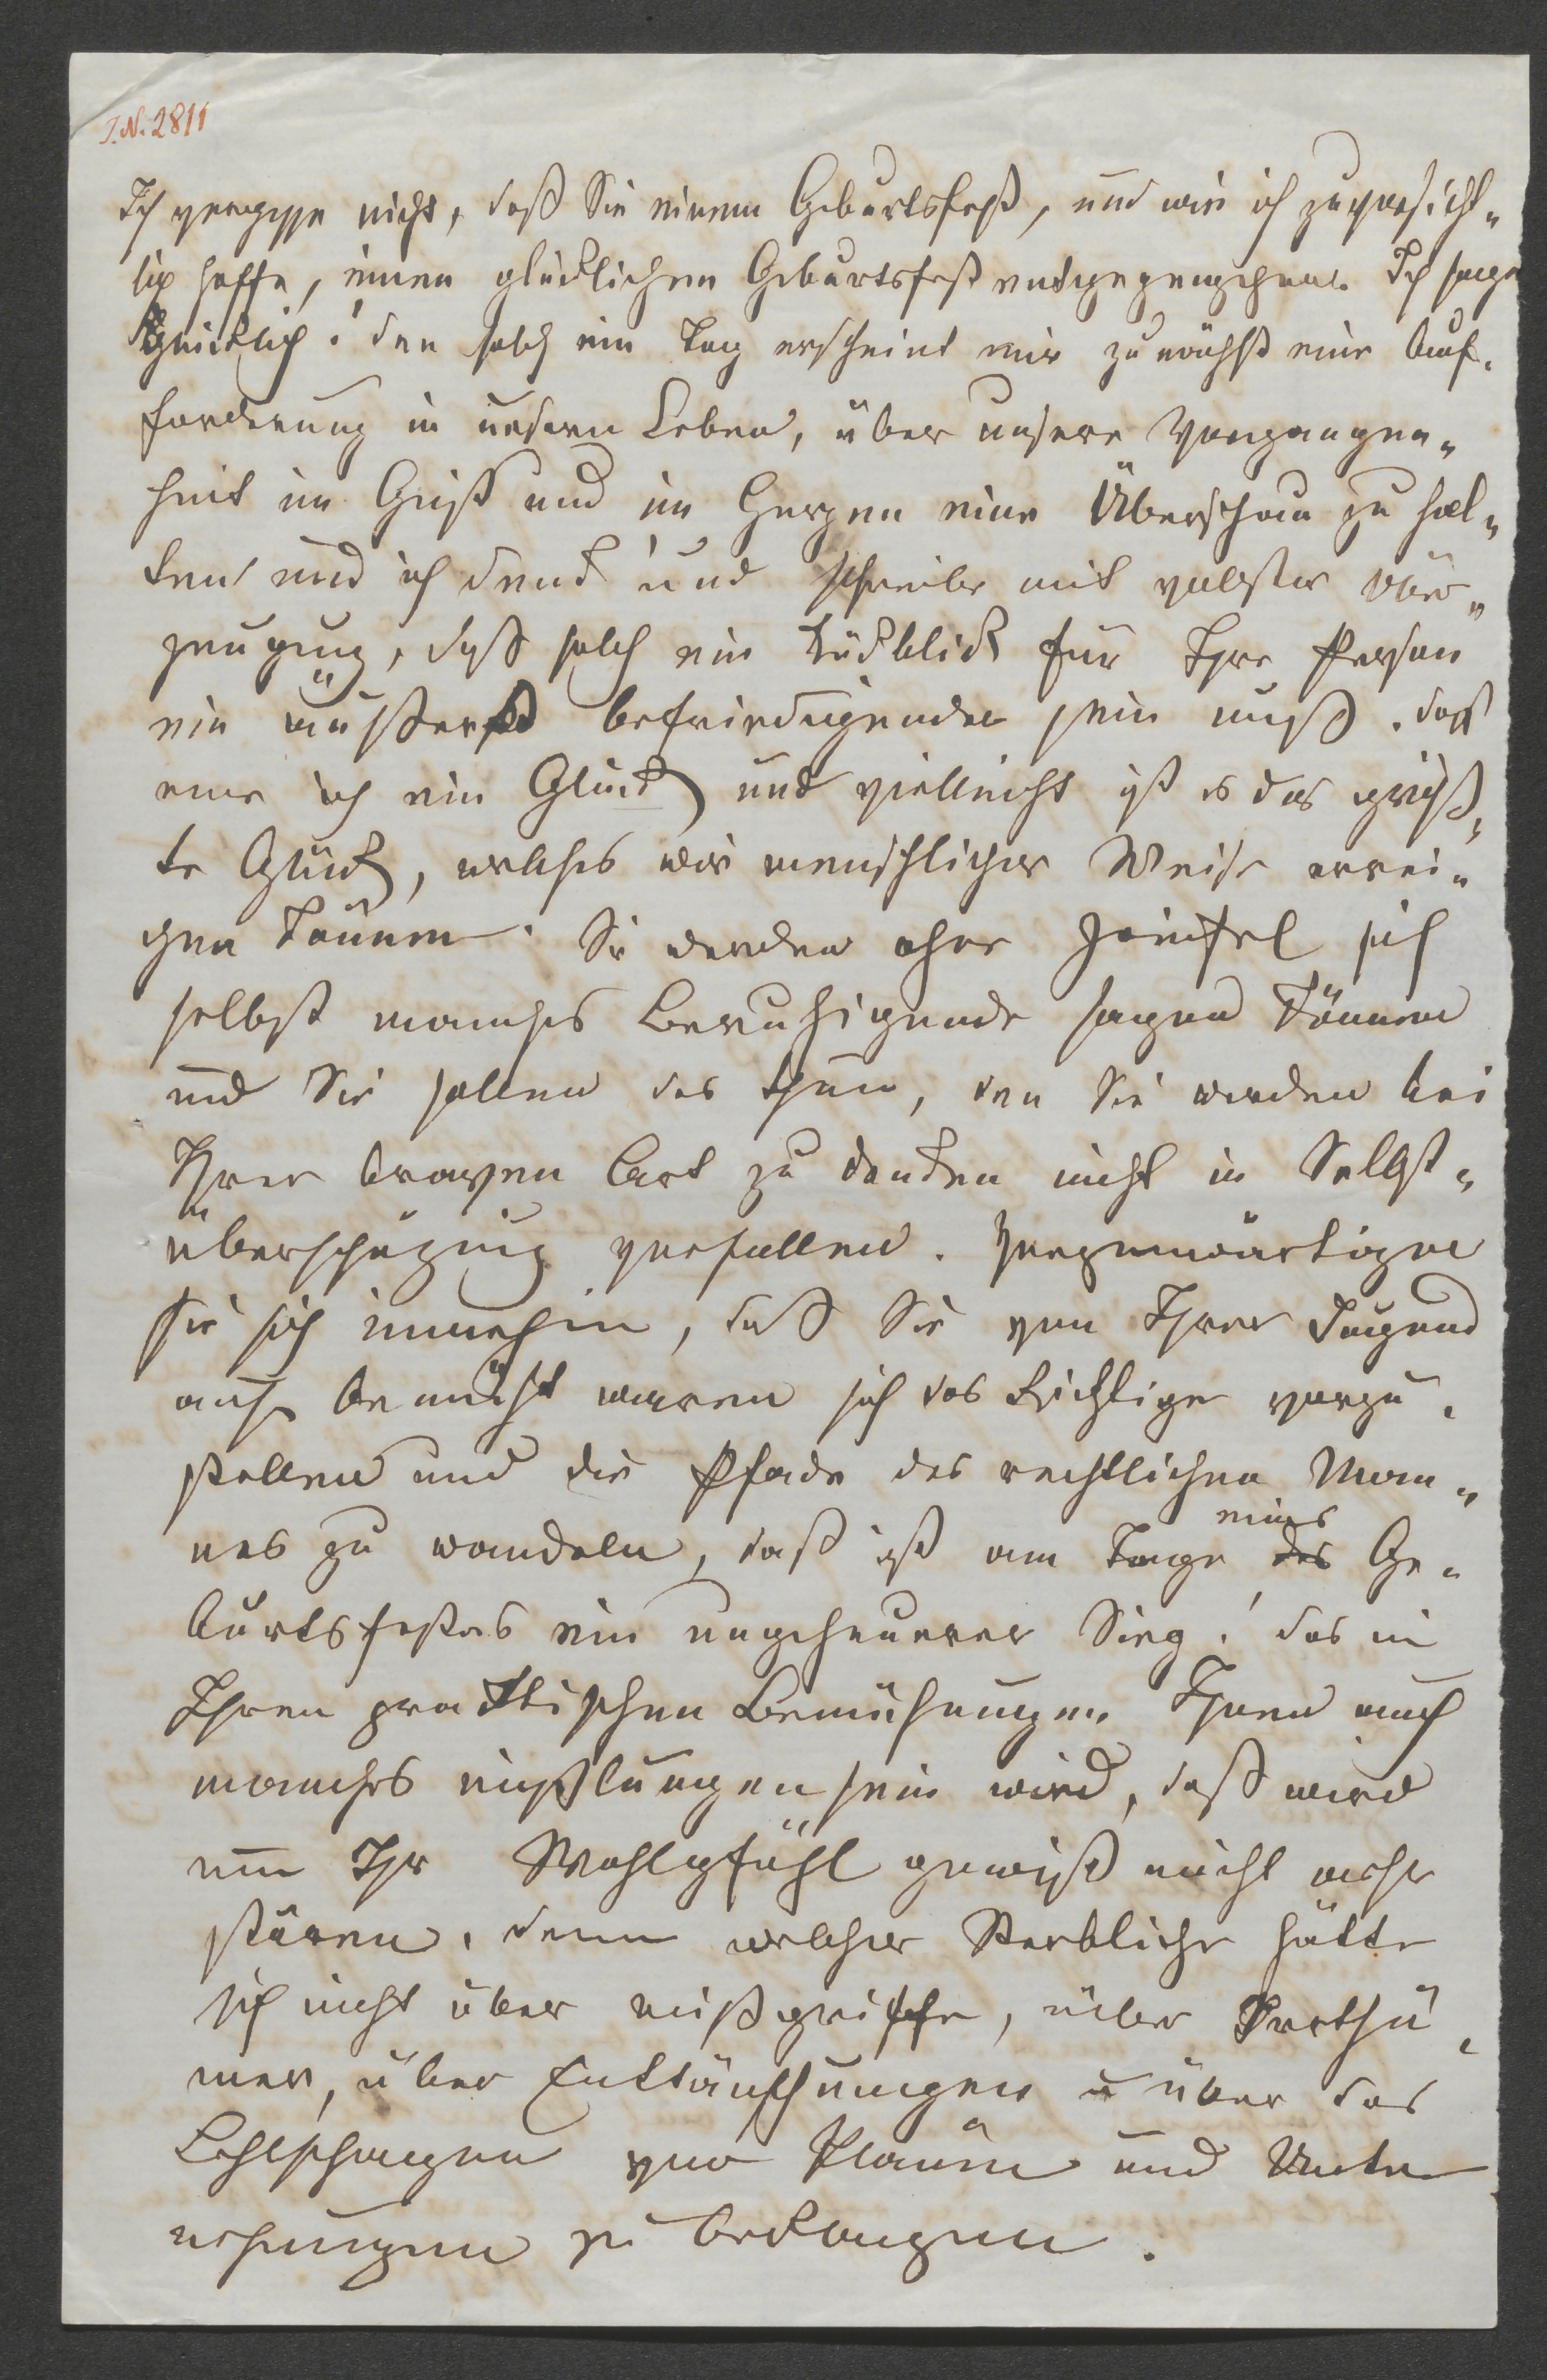 J.N. 2811
Ich vergesse nicht, daß Sie einem Geburtsfest, und wie ich zuversicht„
lich hoffe, einem glücklichem Geburtsfest entgegengehen. Ich sage
glücklich! den solch ein Tag erscheint mir zunächst eine Auf„
forderung in unserm Leben, über unsere Vergangen„
heit im Geist und im Herzen eine Überschau zu hal„
ten und ich denk' und schreibe mit vollster Über„
zeugung, daß solch ein Rückblick für Ihre Person
ein äußerst befriedigender sein muß. daß
nene ich ein Glück und vielleicht ist es das größ„
te Glück, welches wir menschlicher Weise errei„
chen können. Sie werden ohne Zweifel sich
selbst manches Beruhigende sagen können
und Sie sollen das thun, den Sie werden bei
Ihrer braven Art zu denken nicht in Selbst„
überschäzung verfallen. Vergenwärtigen
Sie sich immerhin, daß Sie von Ihrer Jugend
auf bemüht waren sich das Richtige vorzu„
stellen und die Pfade des rechtlichen Man„
nes zu wandeln, daß ist am Tage des eines Ge„
burtsfestes ein ungeheuerer Sieg! das in
Ihren praktischen Bemühungen Ihnen auch
manches mißlungen sein wird, daß wird
nun Ihr Wohlgefühl gewiß nicht mehr
stören, denn welcher Sterbliche hätte
sich nicht über mißgriffe, über Irrthü„
mer, über Enttäuschungen u über das
Fehlschlagen von Plänen und Unter
nehmungen zu beklagen.